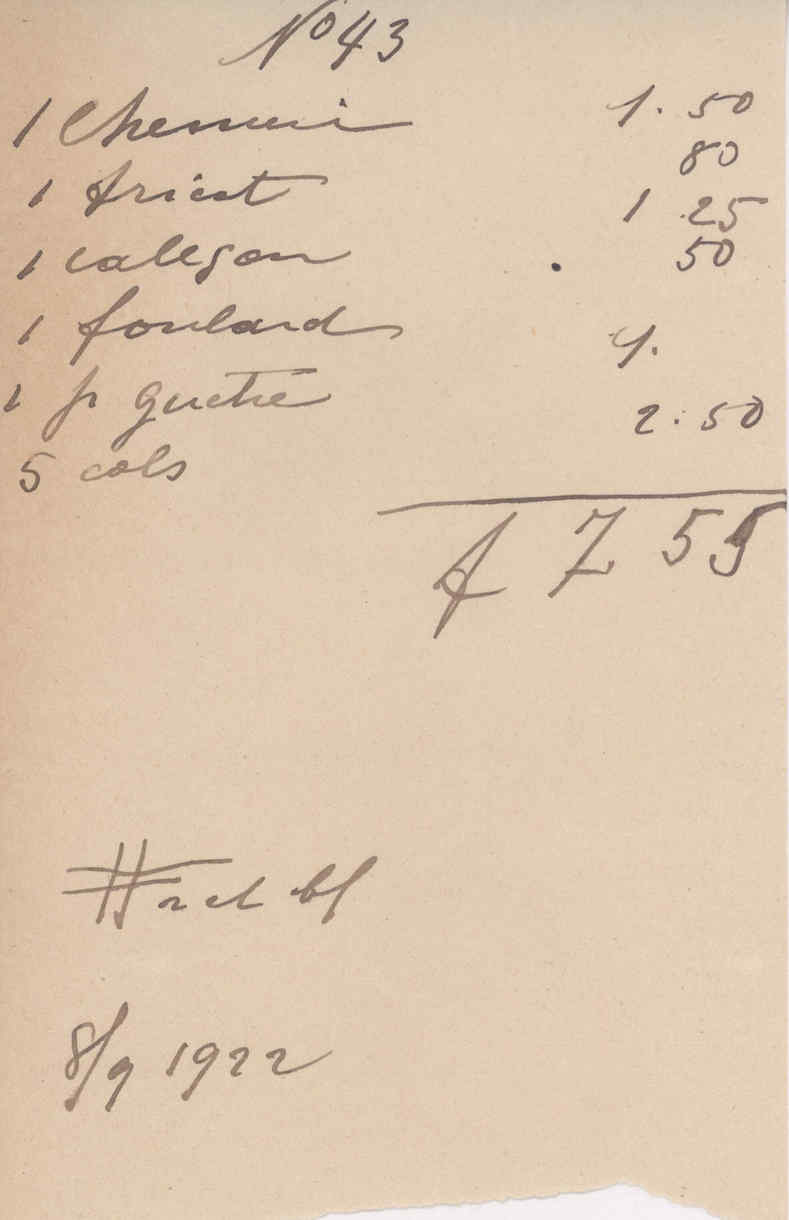 No 43
1 Chemise 1. 50
1 tricot 80
1 caleçon 1 25
1 foulard 50
1 p guetre 1.
5 cols 2. 50
f 7 55
8/9 1922